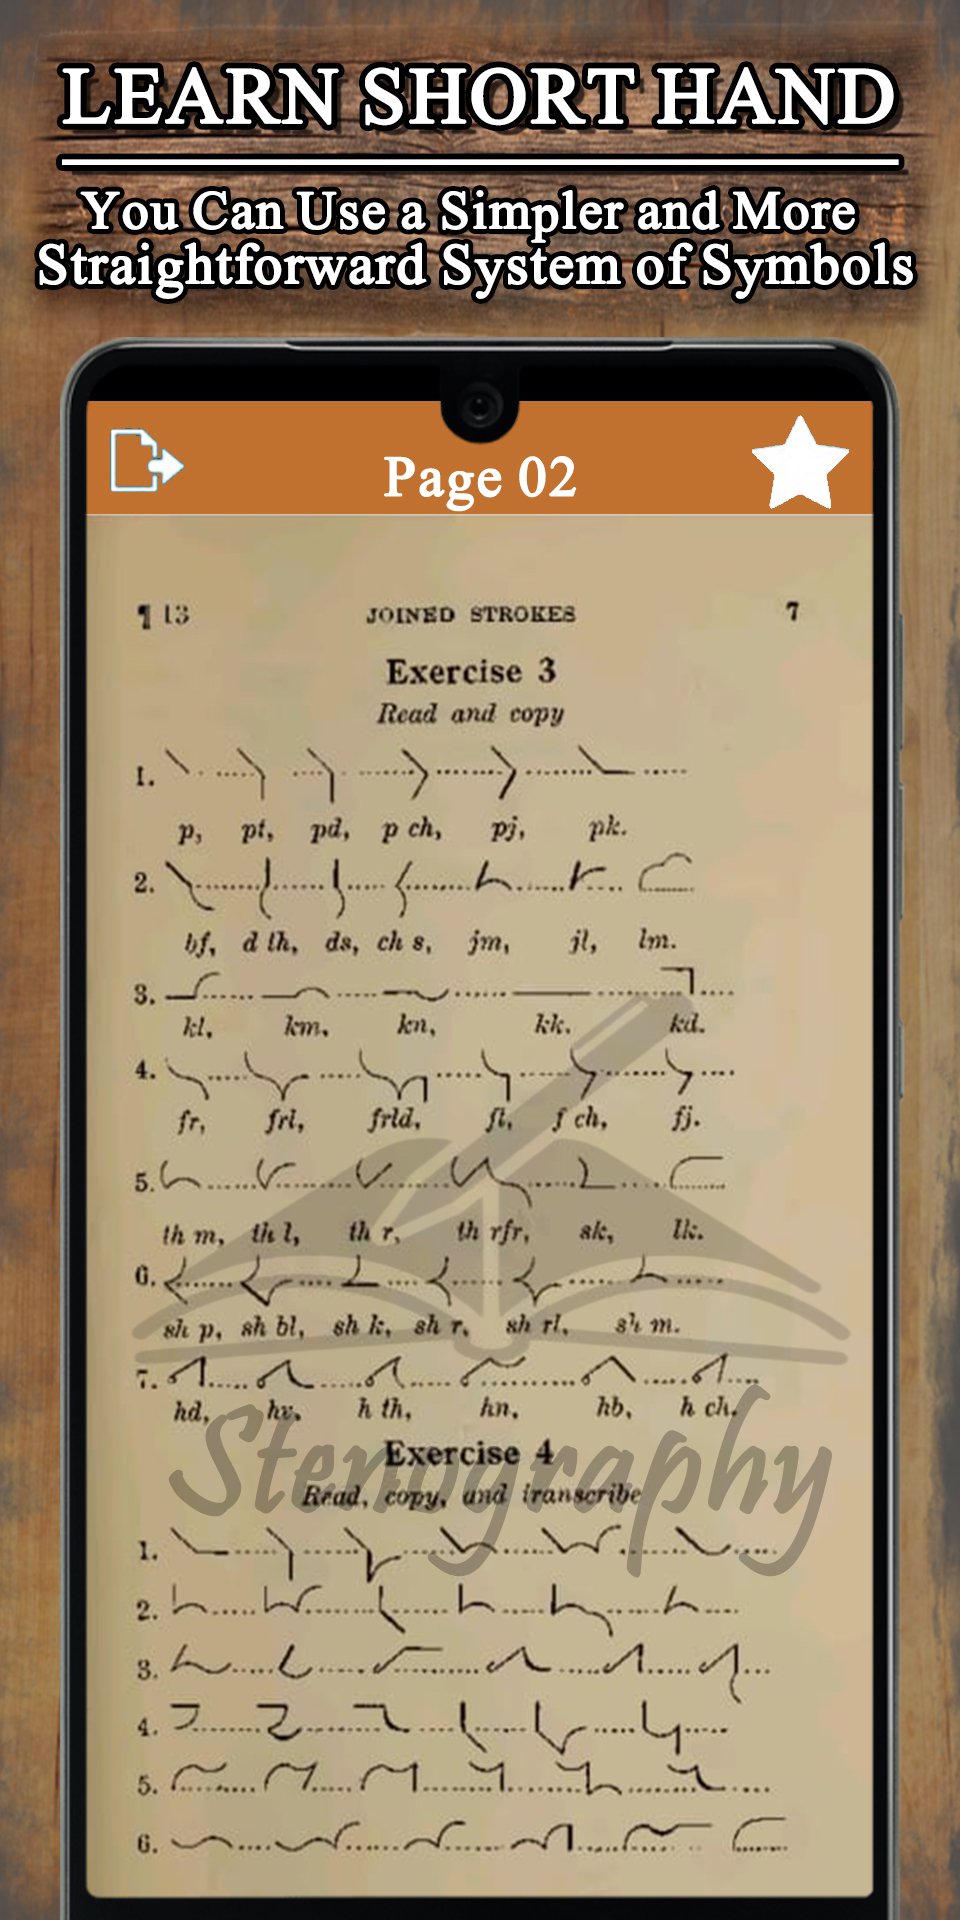 LEARN SHORT HAND
You Can Use a Simpler and More
Straightforward System of Symbols
Page 02
¶ 13 JOINED STROKES 7
Exercise 3
Read and copy
1.
p, pt, pd, p ch, pj, pk.
2.
bf, d th, ds, ch s, jm, jl, lm.
3.
kl, km, kn, kk. kd.
4.
fr, frl, frld, fl, f ch, fj.
5.
th m, th l, th r, th rfr, sk, lk.
6.
sh p, sh bl, sh k, sh r, sh rl, sh m.
7.
hd, hv, h th, hn, hb, h ch.
Stenography
Exercise 4
Read, copy, and transcribe
1.
2.
3.
4.
5.
6.